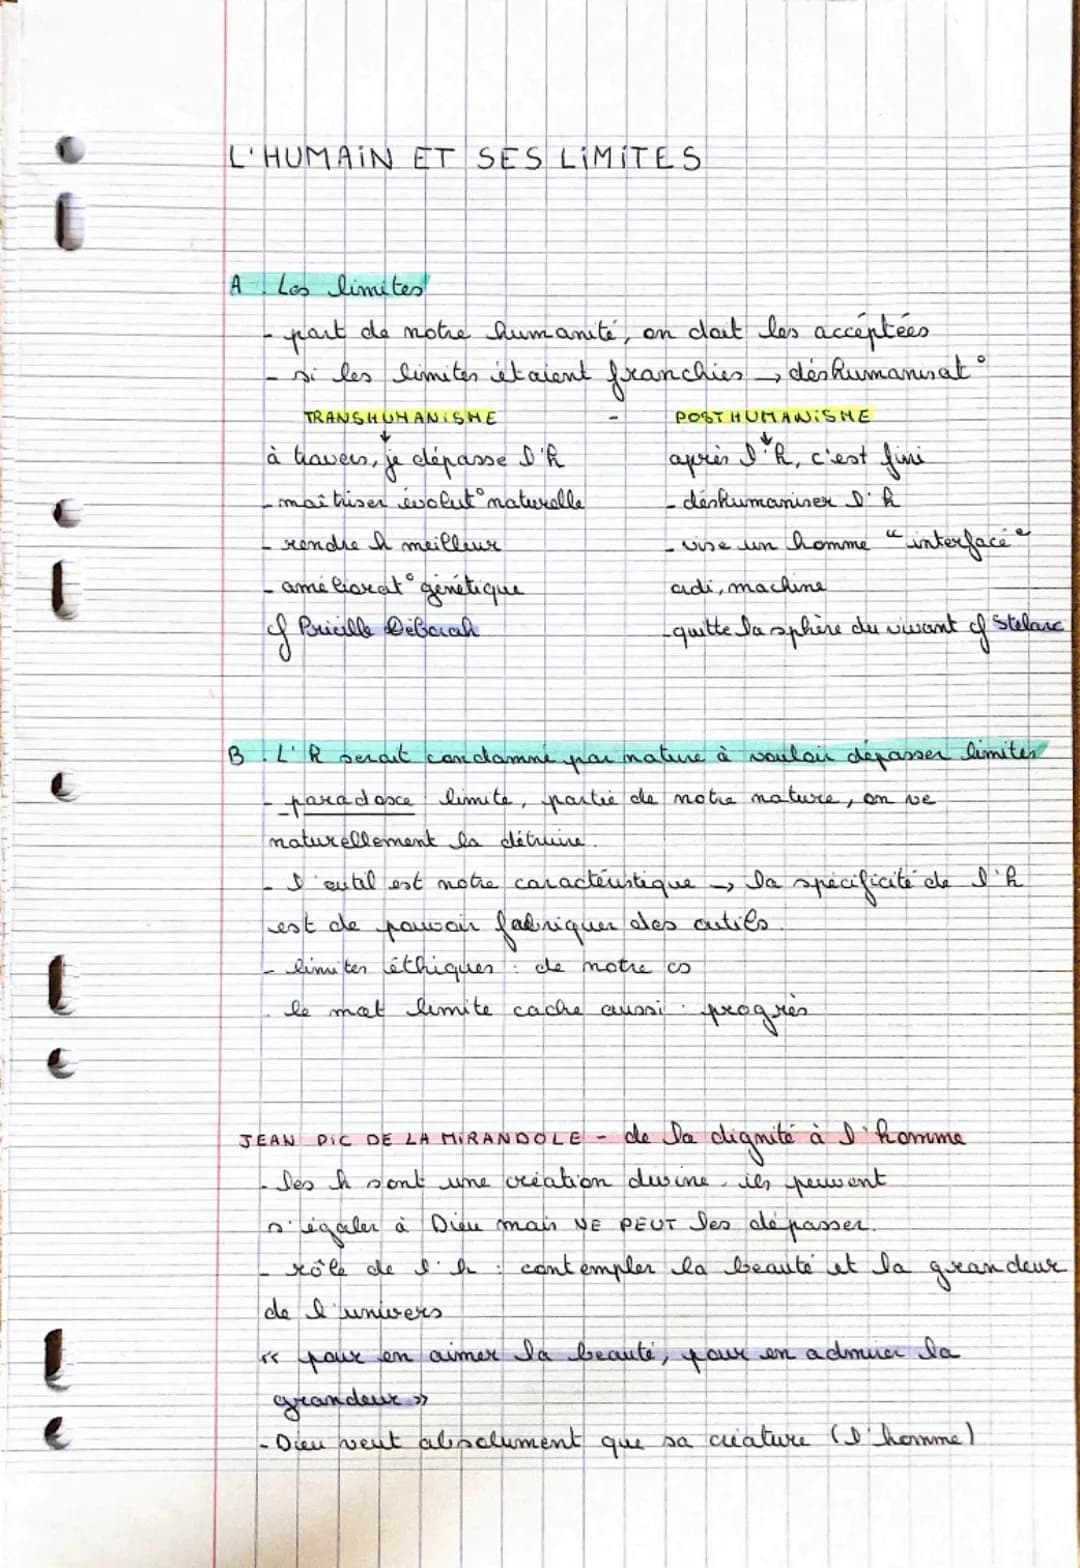 L'HUMAIN ET SES LIMITES
A. Les limites
- part de notre humanité, on doit les acceptées
- si les limites étaient franchies → déshumanisat°
TRANSHUMANISME - POSTHUMANISME
↓ ↓
à travers, je dépasse l'h après l'h, c'est fini
- maîtriser évolut° naturelle - déshumaniser l'h
- rendre h meilleur - vise un homme "interface"
- améliorat° génétique cidi, machine
cf Pricille Déborah - quitte la sphère du vivant cf Stelarc
B. L'h serait condamné par nature à vouloir dépasser limites
- paradoxe : limite, partie de notre nature, on ve
naturellement la détruire.
- l'outil est notre caractéristique → la spécificité de l'h
est de pouvoir fabriquer des outils.
- limites éthiques : de notre cs
- le mot limite cache aussi : progrès
JEAN PIC DE LA MIRANDOLE - de la dignité à l'homme
- les h sont une création divine, ils peuvent
s'égaler à Dieu mais NE PEUT les dépasser.
- rôle de l'h : contempler la beauté et la grandeur
de l'univers
« pour en aimer la beauté, pour en admirer la
grandeur »
- Dieu veut absolument que sa créature (l'homme)